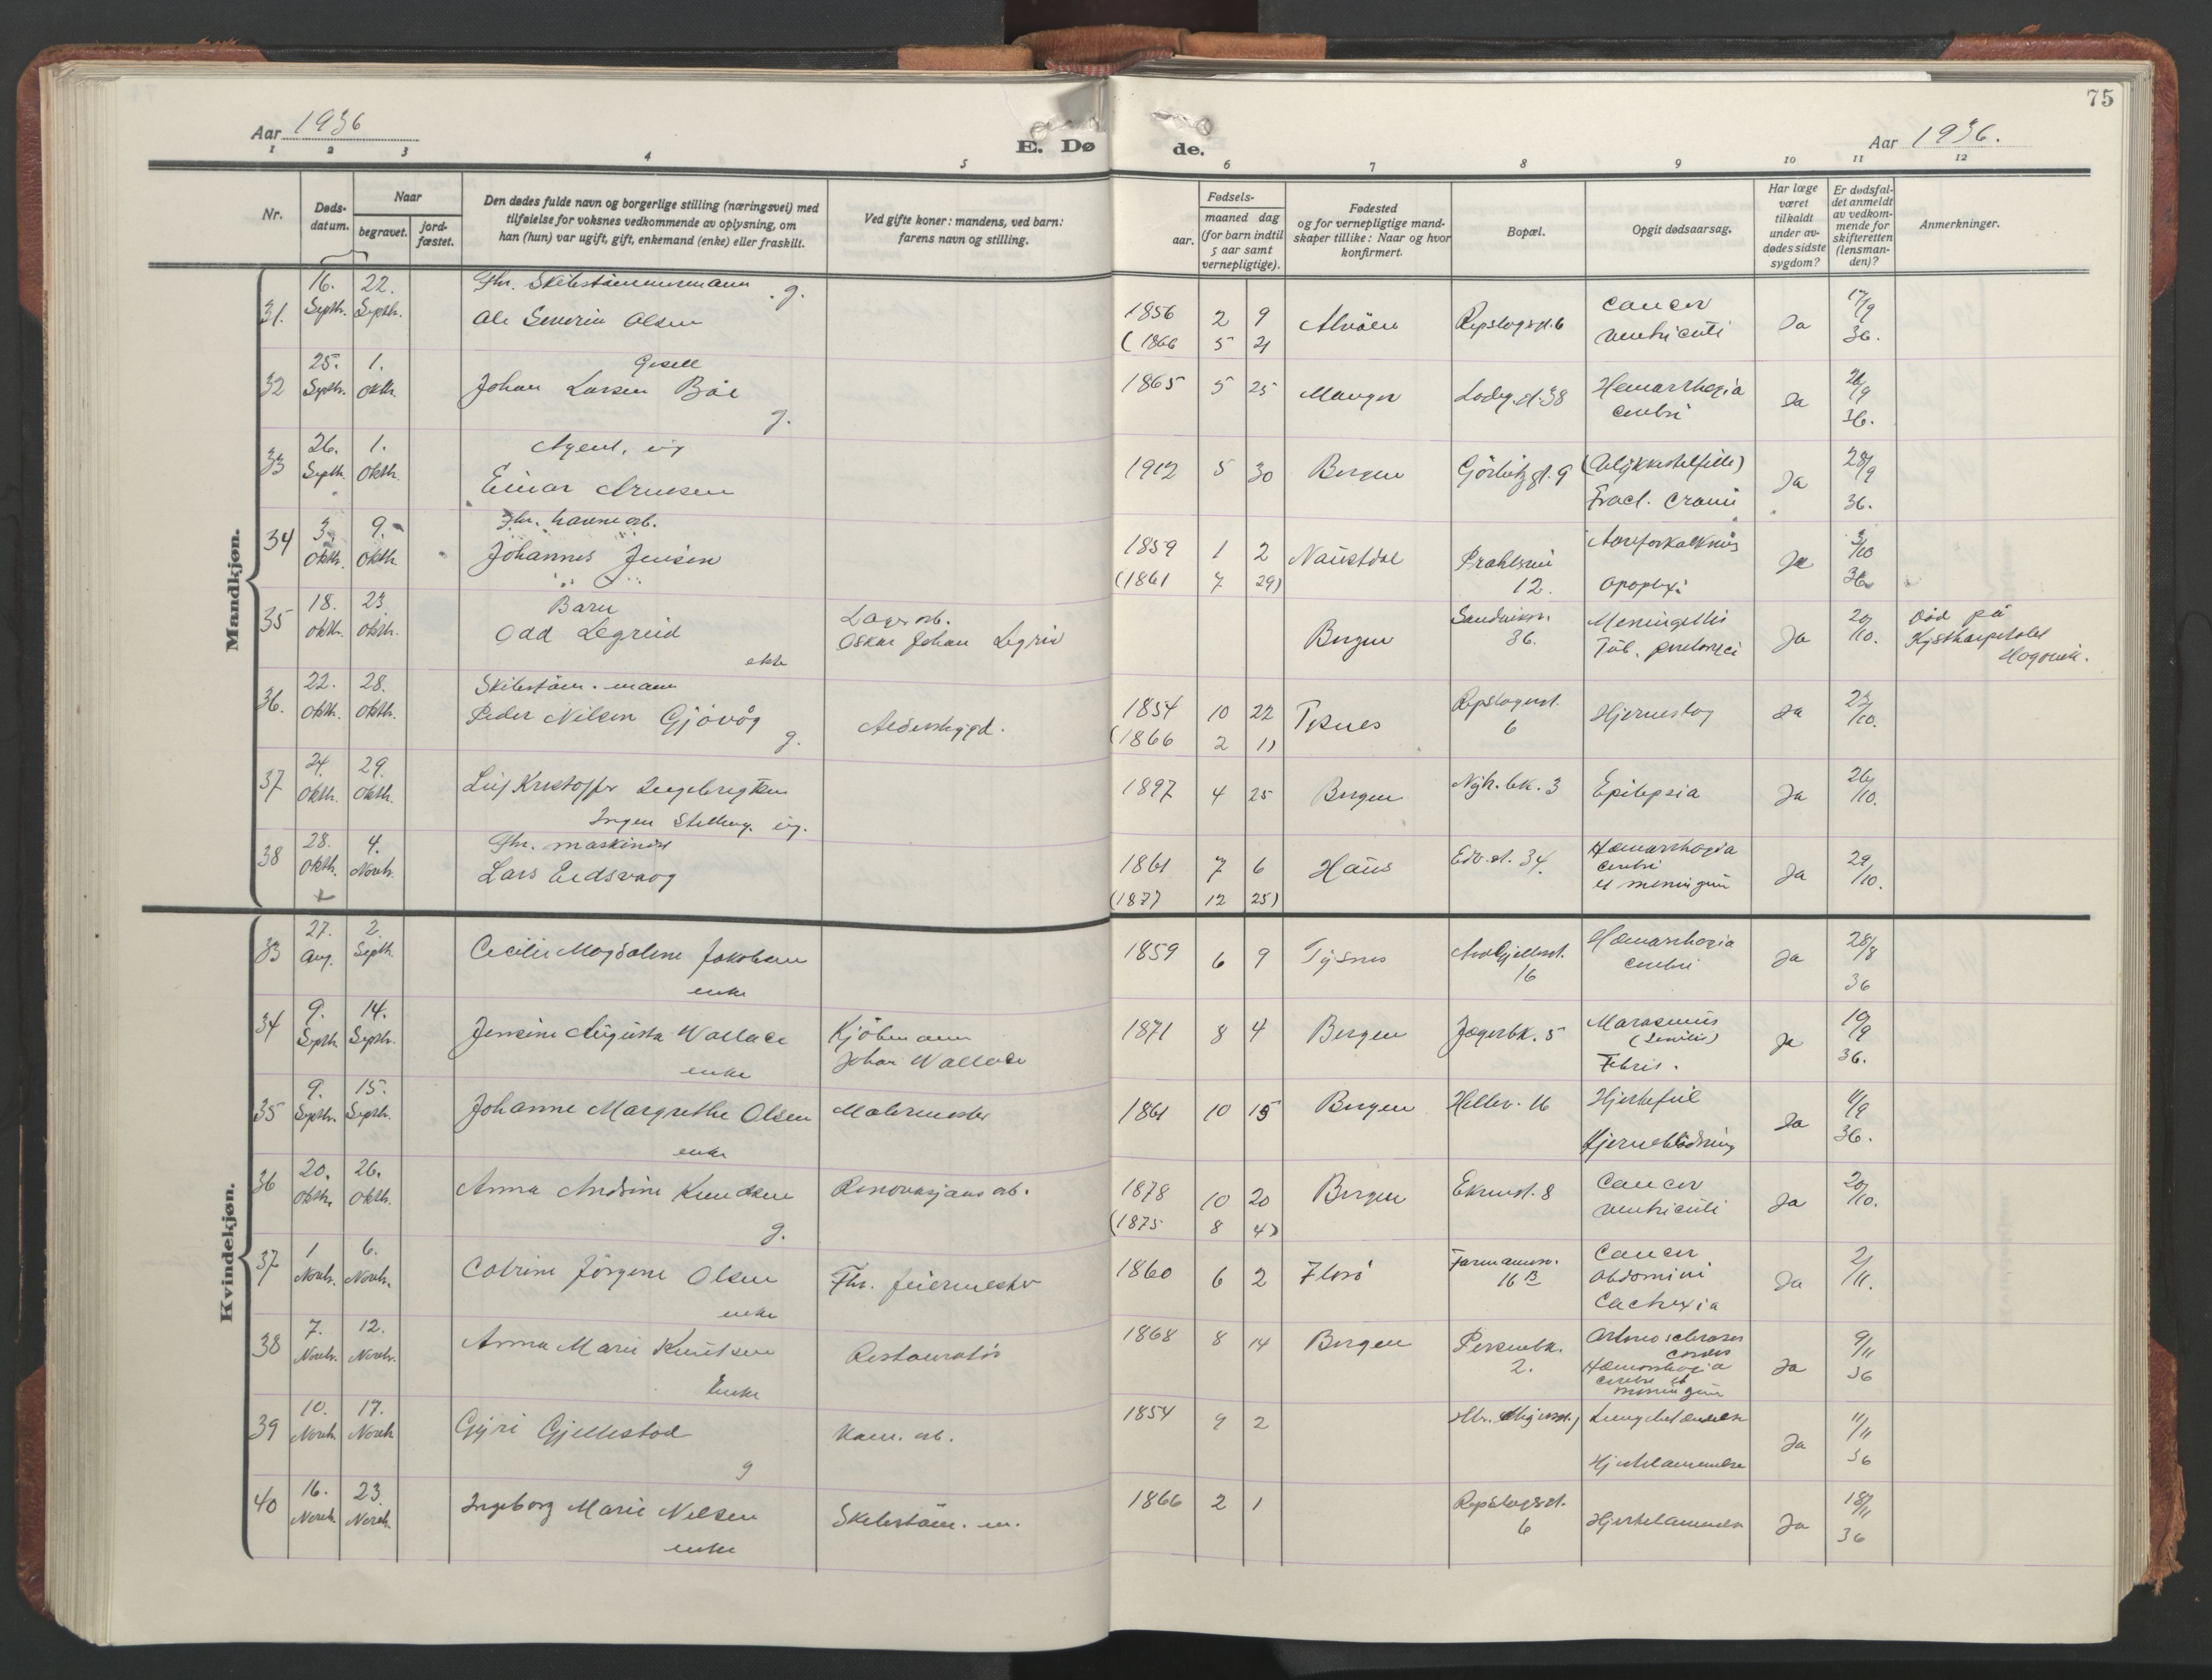 75
Aar 1936
E. Dø
de.
Aar 1936.
1 2 3 4 5 6 7 8 9 10 11 12
Nr.
Døds-
datum.
Naar
begravet.
jord-
fæstet.
Den dødes fulde navn og borgerlige stilling (næringsvei) med
tilføielse for voksnes vedkommende av oplysning, om
han (hun) var ugift, gift, enkemand (enke) eller fraskilt.
Ved gifte koner: mandens, ved barn:
farens navn og stilling.
Fødsels-
aar.
maaned dag
(for barn indtil
5 aar samt
vernepligtige).
Fødested
og for vernepligtige mand-
skaper tillike: Naar og hvor
konfirmert.
Bopæl.
Opgit dødsaarsag.
Har læge
været
tilkaldt
under av-
dødes sidste
sygdom?
Er dødsfal-
det anmeldt
av vedkom-
mende for
skifteretten
(lensman-
den)?
Anmerkninger.
Mandkjøn.
31. 16. Septb. 22. Septb.
Fhv. Skibstømmermann g.
Ole Severin Olsen
1856 2 9 Alvöen Repslagergt. 6 Cancer ventriculi Ja 17/9 36.
(1866 5 2)
32 25. Septb. 1. Oktb.
Johan Larsen Böe
g.
1865 5 25 Manger Lodeg.st. 38 Hemorrhagia cerebri Ja 26/9 36.
33 26. Septb. 1. Oktb.
Agent, ug
Einar Arnesen
1912 5 30 Bergen Görbitz gt. 9 (Ulykkestilfelle) Fract. cranii Ja 28/9 36.
34 3. Oktb. 9. Oktb.
Fhv. havnearb.
Johannes Jensen
1859 1 2 Naustdal 12. Aareforkalkning apoplexi Ja 3/10 36
(1861 7 29)
35 18. Oktb. 23. Oktb.
Barn
Odd Legreid
ekte
Lagerarb.
Oskar Johan Legreid
Bergen Sandviksv. 36. Meningitis Tub. Ja 20/10. Död på
Kysthospitalet
Hagevik.
36. 22. Oktb. 28. Oktb.
Skibstøm. mann
Peder Nilsen Gjövåg
g.
Alderstrygd.
1854 10 22 Repslagergt. 6 Hjerneslag Ja 23/10.
(1866 2 1)
37 24. Oktb. 29. Oktb.
Leif Kristoffer Ingebrigtsen
Ingen Stilling. ug.
1897 4 25 Bergen Nyh. bk. 3 Epilepsia Ja 26/10.
38 28. Oktb. 4. Novb.
Fhv. maskinist
Lars Eidsvaag
1861 7 6 Haus Edv. st. 34. Hæmorrhagia cerebri et meningiun Ja 29/10.
(1877 12 25)
Kvindekjøn.
33 27. Aug. 2. Septb.
Cecilie Magdalene Jakobsen
enke
1859 6 9 Tysnes 16 Hæmorrhagia cerebri Ja 28/8 36
34 9. Septb. 14. Septb.
Jensine Augusta Wallace
enke
Kjöbmann
Johan Wallace
1871 8 4 Bergen Jægerbk. 5 Marasmus (Senilis) Febris. Ja 10/9 36.
35 9. Septb. 15. Septb.
Johanne Margrethe Olsen
enke
Malermester
1861 10 15 Bergen Hellev. 16 Hjertefeil Hjerneblödning Ja 11/9 36.
36 20. Oktb. 26. Oktb.
Anna Andrine Knudsen
g.
Renovasjonsarb.
1878 10 20 Bergen Ekrengt. 8 Cancer ventriculi Ja 20/10.
(1875 8 4)
37 1 Novb. 6. Novb.
Catrine Jörgene Olsen
enke
Fhv. feiermester
1860 6 2 Florö Formannsv. 16 B Cancer abdomini Cachexia Ja 2/11.
38 7. Novb. 12. Novb.
Anna Marie Knutsen
Enke
Restauratör
1868 8 14 Bergen Persenbk. 2. Arteriosclerosis cordis Hæmorrhagia cerebri et meningiun Ja 9/11 36
39 10. Novb. 17. Novb.
Gyri Gjellestad
g
1854 9 2 Lungebetændelse Hjertelammelse Ja 11/11 36
40 16. Novb. 23. Novb.
Ingeborg Marie Nilsen
enke
Skibstöm. m.
1866 2 1 Repslagergt. 6 Hjertelammelse Ja 18/11 36